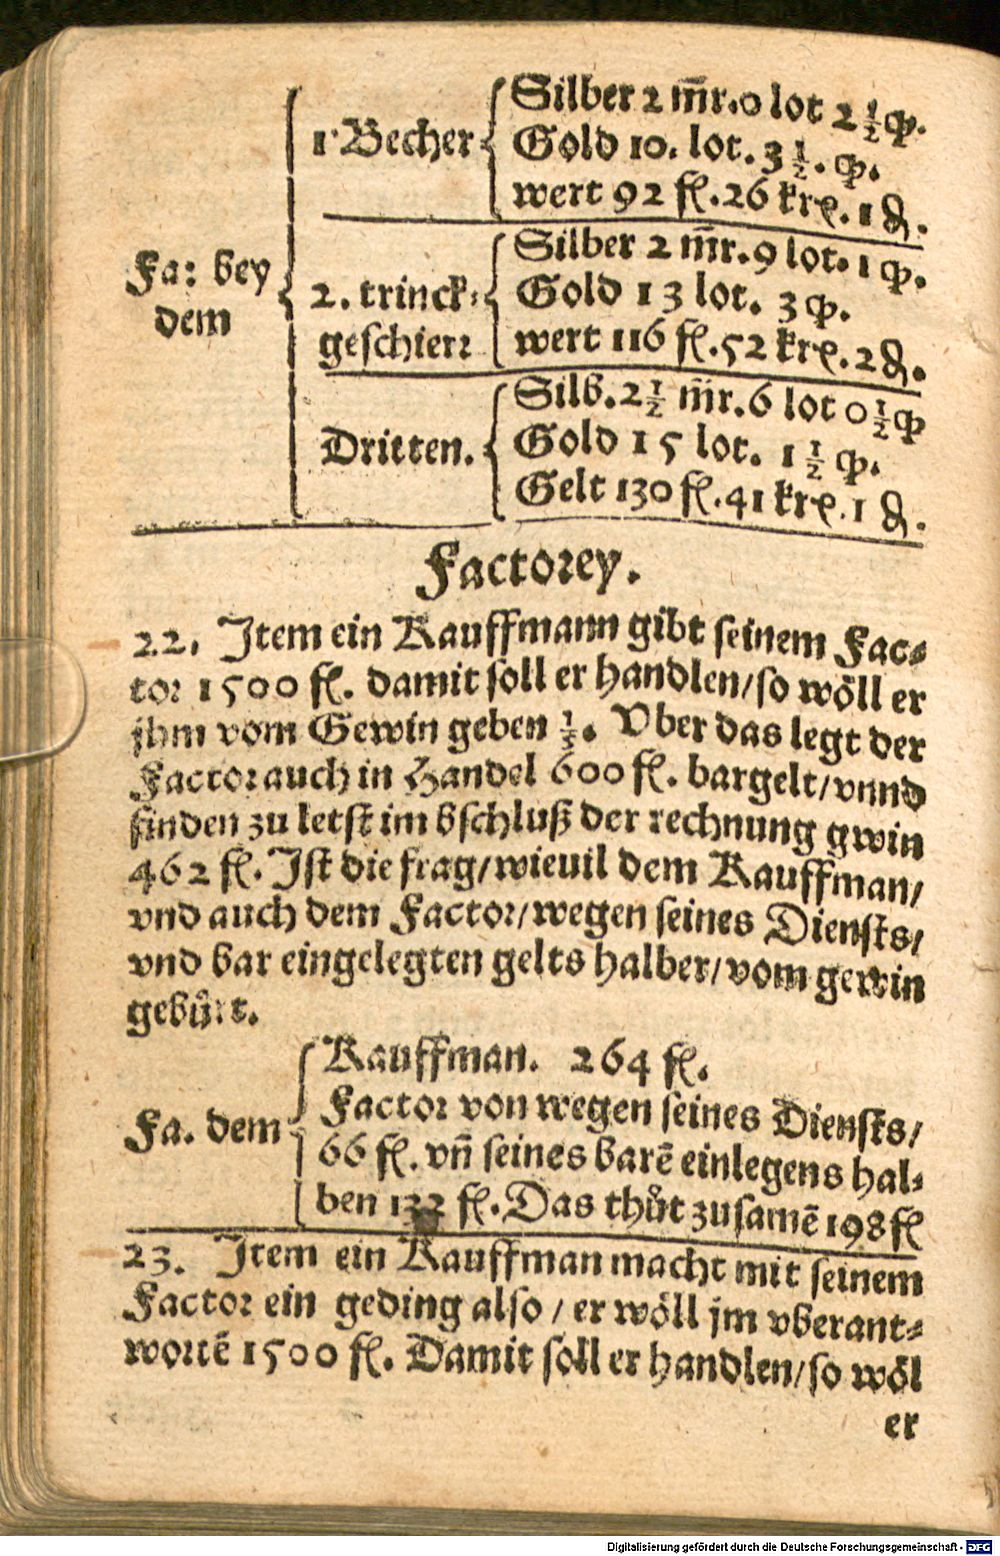 Fa: bey
dem
1 Becher
Silber 2 mr̄. 0 lot 2 1/2 qͥ.
Gold 10. lot. 3 1/2. q.
wert 92 fl. 26 krꝭ. 1 ₰.
2. trinck⸗
geschierꝛ
Silber 2 mr̄. 9 lot. 1 q.
Gold 13 lot. 3 q.
wert 116 fl. 52 krꝭ. 2 ₰.
Dritten.
Silb. 2 1/2 mr̄. 6 lot 0 1/2 q
Gold 15 lot. 1 1/2 q.
Gelt 130 fl. 41 krꝭ. 1 ₰.
Factoꝛey.
22. Jtem ein Kauffmann gibt seinem Fac⸗
toꝛ 1500 fl. damit soll er handlen/so wöll er
jhm vom Gewin geben 1/3. Vber das legt der
Factoꝛ auch in Handel 600 fl. bargelt/vnnd
finden zu letst im bschluß der rechnung gwin
462 fl. Jst die frag/wieuil dem Kauffman/
vnd auch dem Factoꝛ/wegen seines Diensts/
vnd bar eingelegten gelts halber/vom gewin
gebuͤrt.
Fa. dem
Kauffman. 264 fl.
Factoꝛ von wegen seines Diensts/
66 fl. vñ seines barē einlegens hal⸗
ben 132 fl. Das thuͦt zusamē 198 fl
23. Jtem ein Kauffman macht mit seinem
Factoꝛ ein geding also / er wöll jm vberant⸗
woꝛtē 1500 fl. Damit soll er handlen/so wöl
er
Digitalisierung gefördert durch die Deutsche Forschungsgemeinschaft - DFG